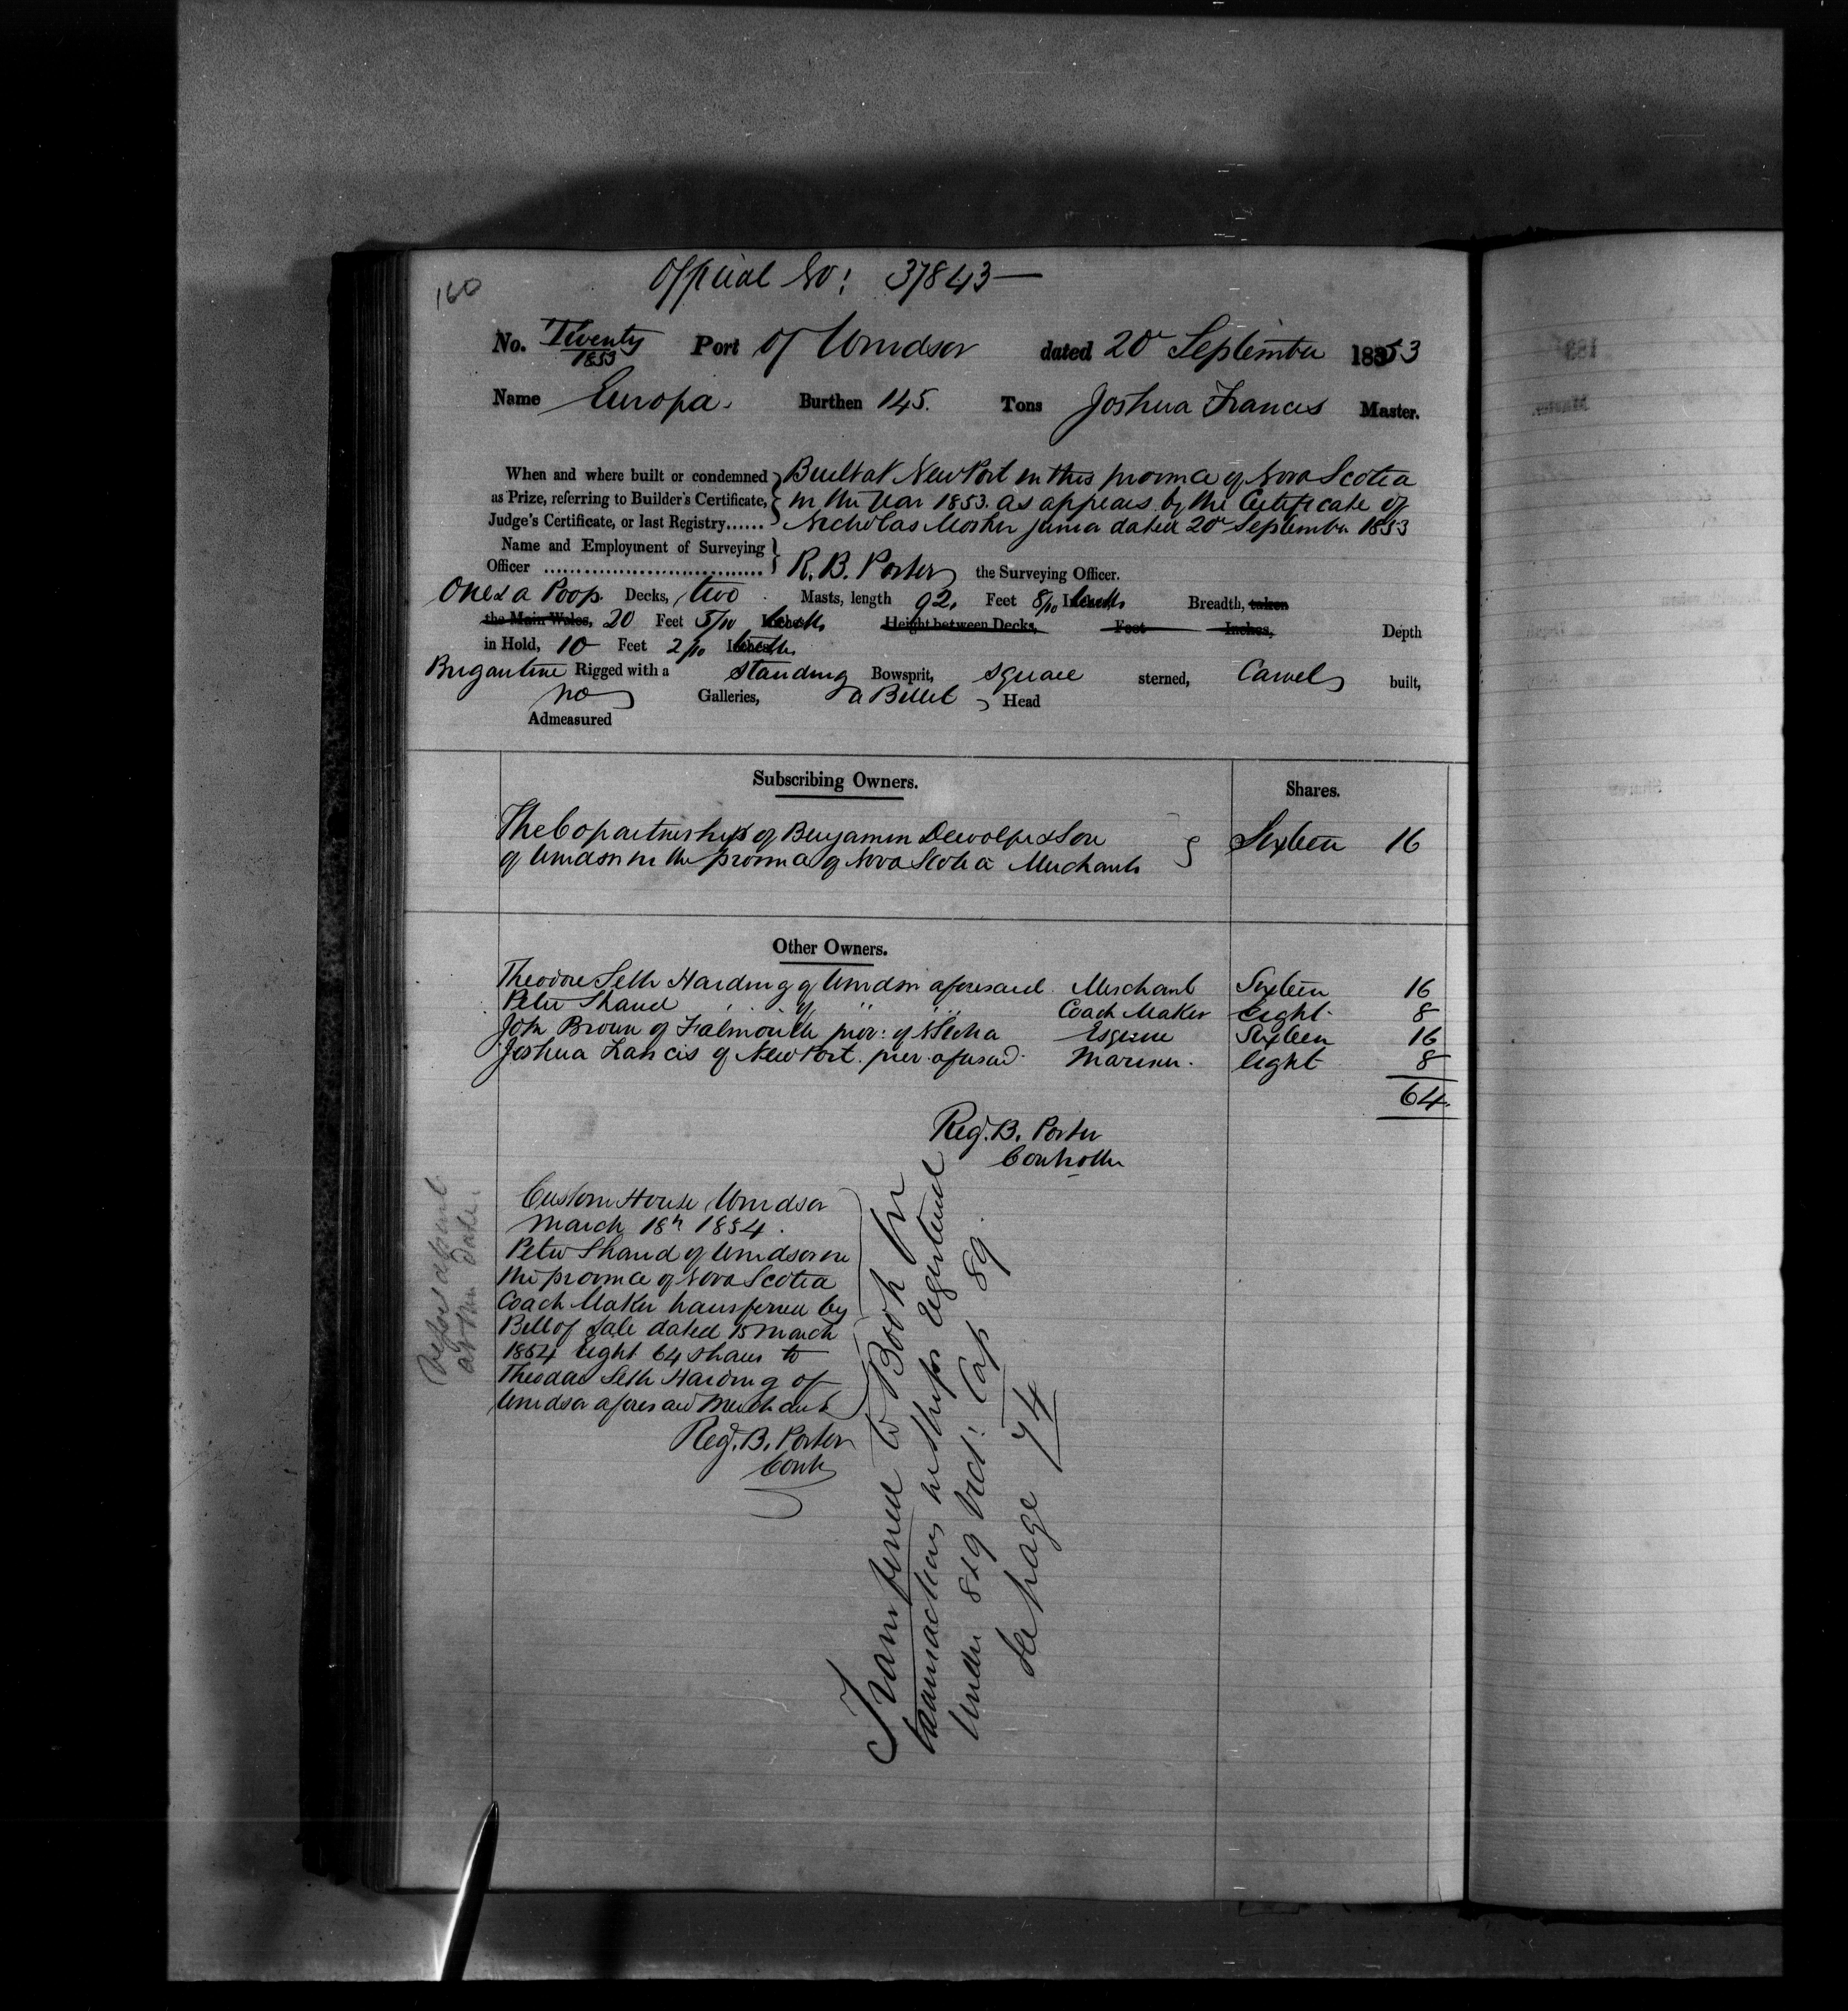 160
Official No: 37843
No. Twenty/1853 Port of Windsor dated 20th September 1853
Name Europa. Burthen 145. Tons Joshua Francis Master.
When and where built or condemned Built at NewPort in this province of Nova Scotia
as Prize, referring to Builder's Certificate, in the Year 1853. as appears by the Certificate of
Judge's Certificate, or last Registry...... Nicholas Mosher junior dated 20th September 1853
Name and Employment of Surveying
Officer ................................. R. B. Porter the Surveying Officer.
One & a Poop. Decks, two Masts, length 92. Feet 8/10 Inches tenths Breadth, taken
the Main Wales, 20 Feet 5/10 Inches tenths Height between Decks, Feet Inches, Depth
in Hold, 10 Feet 2/10 Inches tenths
Brigantine Rigged with a Standing Bowsprit, square sterned, Carvel built,
no Galleries, a Billet Head
Admeasured
Subscribing Owners.
Shares.
The Copartnership of Benjamin Dewolfe & Son
of Windsor in the province of Nova Scotia Merchants Sixteen 16
Other Owners.
Theodore Seth Harding of Windsor aforesaid Merchant Sixteen 16
Peter Shand " of " " Coach Maker Eight 8
John Brown of Falmouth prov: of N Scotia Esquire Sixteen 16
Joshua Francis of NewPort. prov. aforesaid Mariner. Eight 8
64
Reg. B. Porter
Controller
Custom House Windsor
March 18th 1854.
Peter Shand of Windsor in
the province of Nova Scotia
Coach Maker transferred by
Bill of Sale dated 15 March
1854 Eight 64 shares to
Theodore Seth Harding of
Windsor aforesaid Merchant
Reg. B. Porter
Contr
Transferred to Book for
transactions in Ships registered
Under 8 & 9 Vict: Cap 89.
See page 74